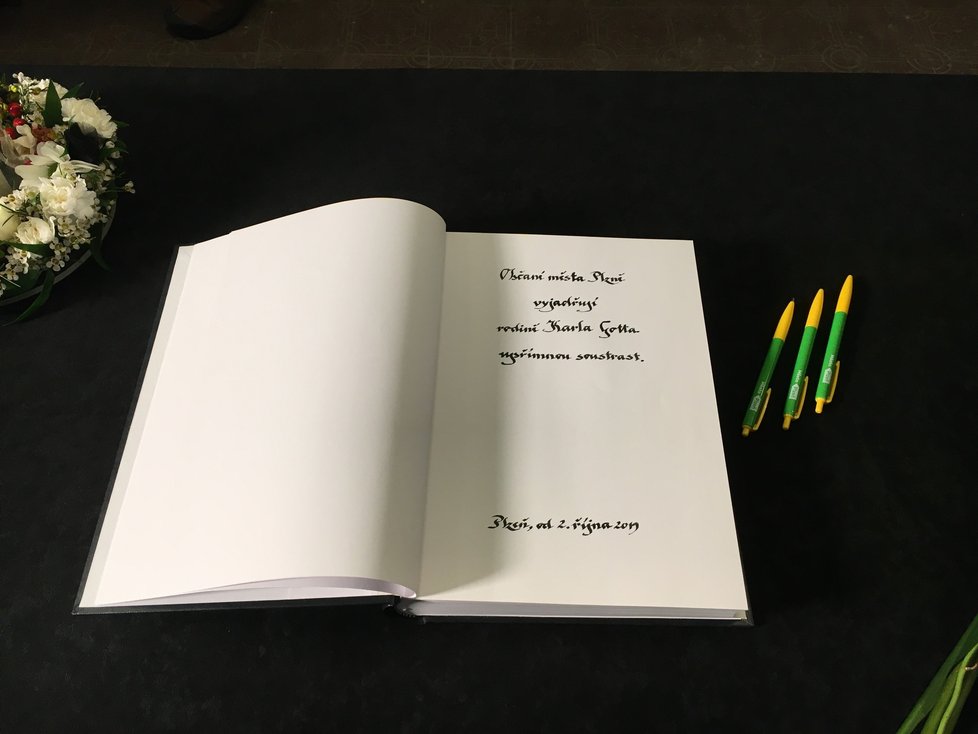 Občané města Plzně
vyjadřují
rodině Karla Gotta
upřímnou soustrast.
Plzeň, od 2. října 2019